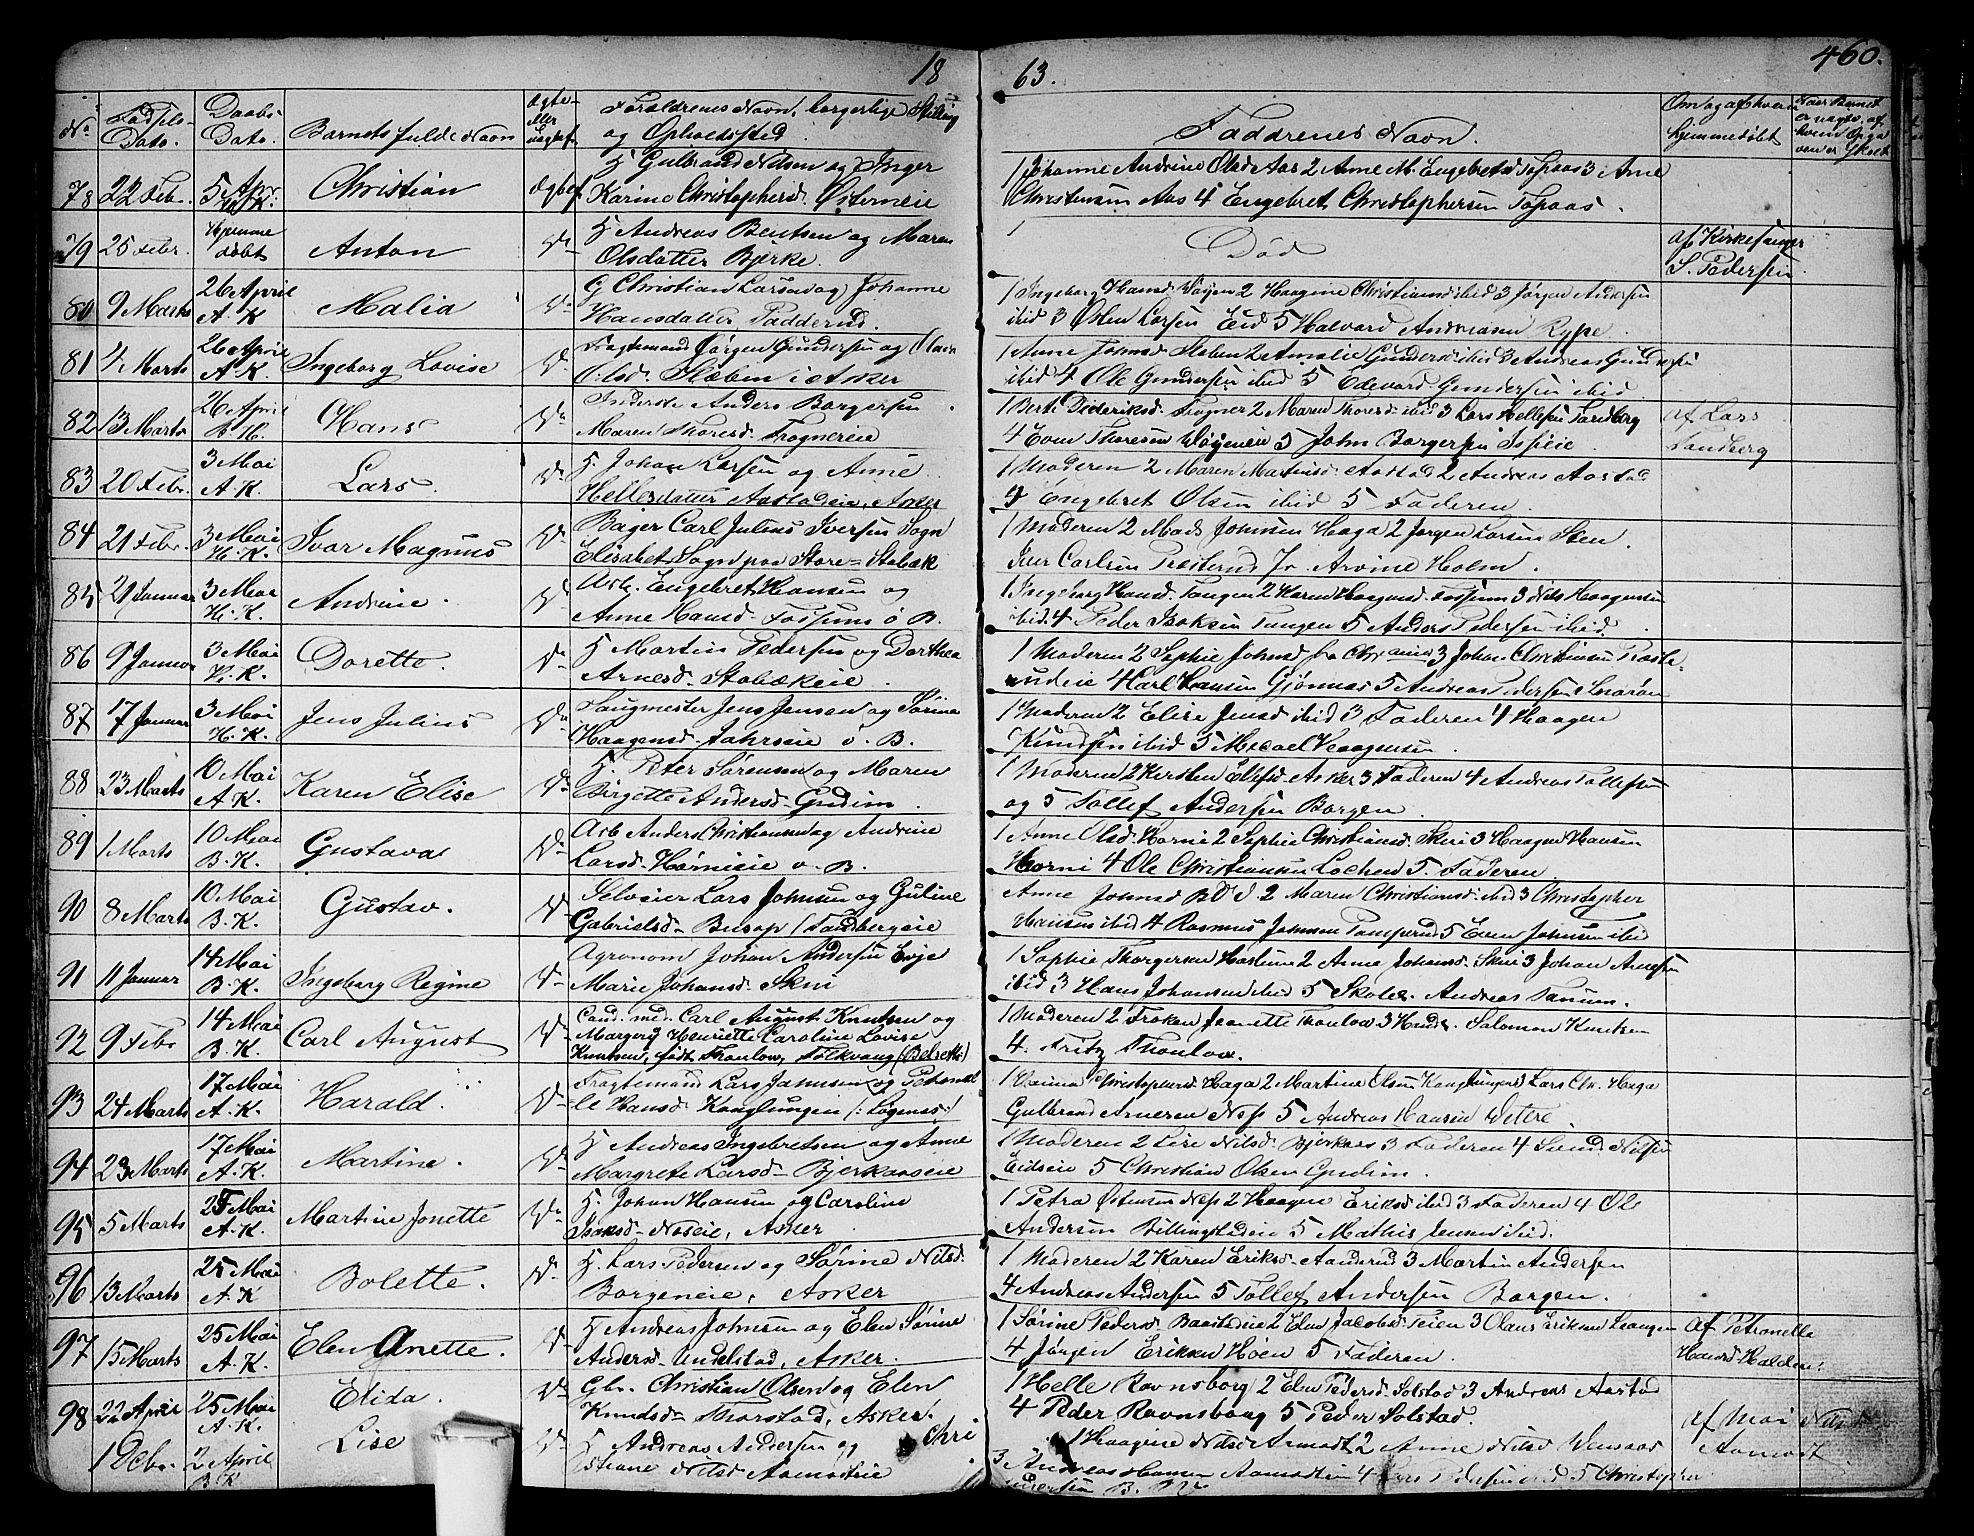 18
63.
460.
No. Fødsels-Dato. Daabs-Dato. Barnets fulde Navn Ægte- eller Uægtef. Forældrenes Navn, borgerlige Stilling og Opholdssted. Faddrenes Navn. Om og af hvem hjemmedøbt
78 22 Febr 5 Apr. Christian Ægtef H Gulbrand Nilsen og Inger
Karine Christophersd. Østerneie
1 Johanne Andrine Olsd Aas 2 Anne M. Engebretsd Topaas 3 Arne
Christensen Aas 4 Engebret Christophersen Topaas.
79 25 Febr. Hjemme døbt Anton Do H Andreas Bentsen og Maren
Olsdatter Bjerke.
1 Død af Kirkesanger
S. Pedersen
80 9 Marts 26 April A. K Malia Do G Christian Larsen og Johanne
Hansdatter Padderud.
1 Ingeborg Hansd Vøjen 2 Haagine Christiansd ibid 3 Jørgen Andersen
ibid 3 Østen Larsen Eid 5 Halvard Andreasen Rype.
81 4 Marts 26 April A K Ingeborg Lovise Do Fragtemand Jørgen Gundersen og Olava
Olsd. Slæben i Asker
1 Anne Johnsd Slæben 2 Amalie Gundersd ibid 3 Andreas Gundersen
ibid 4 Ole Gundersen ibid 5 Edevard Gundersen ibid
82 13 Marts 26 April B. K. Hans Do Inderste Anders Borgersen
Maren Thoresd. Frognereie
1 Berte Dideriksd. Frogner 2 Maren Thoresd ibid 3 Lars Hellesen Tandberg
4 Even Thoresen Vøyeneie 5 John Borgersen Ispeie.
af Lars
Tandberg
83 20 Febr. 3 Mai A. K. Lars. Do H. Johan Larsen og Anne
Hellesdatter Aastadeie, Asker
1 Moderen 2 Maren Martinsd Aastad 2 Andreas Aastad
4 Engebret Olsen ibid 5 Faderen.
84 21 Febr. 3 Mai H. K. Ivar Magnus Do Bager Carl Julius Iversen Sogn
Elisabet Sogn paa Store-Stabæk
1 Moderen 2 Mads Johnsen Haga 2 Jørgen Larsen Steen.
Iver Carlsen Presterud Jr Arvine Holm.
85 29 Januar 3 Mai H. K. Andrine. Do Arb. Engebret Hansen og
Anne Hansd. Fossum ø B.
1 Ingeborg Hansd. Tangen 2 Karen Haagensd. Fossum 3 Nils Haagensen
ibid 4 Peder Isaksen Tangen 5 Anders Pedersen ibid.
86 9 Januar 3 Mai H. K. Dorette. Do H Martin Pedersen og Dorthea
Arnesd. Stabækeie.
1 Moderen 2 Sophie Johnsd fra Chr. ania 3 Johan Christiansen Preste-
rudeie 4 Karl Hansen Gjønnæs 5 Andreas Pedersen Snarøen
87 17 Januar 3 Mai H. K. Jens Julius Do Saugmester Jens Jensen og Sørine
Haagensd. Jahrseie v. B.
1 Moderen 2 Elise Jensd ibid 3 Faderen 4 Haagen
Knudsen ibid 5 Micael Haagensen.
88 23 Marts 10 Mai A. K. Karen Elise Do H. Peter Sørensen og Maren
Birgitte Andersd. Gudim.
1 Moderen 2 Kersten Ellefsd. Asker 3 Faderen 4 Andreas Tollefsen
og 5 Tollef Andersen Borgen.
89 1 Marts 10 Mai B. K. Gustava Do Arb Anders Christiansen og Andrine
Larsd. Hornieie v. B.
1 Anne Olsd. Horni 2 Sophie Christiansd. Skui 3 Haagen Hansen
Horni 4 Ole Christiansen Løchen 5. Faderen.
90 8 Marts 10 Mai B. K. Gustav. Do Selveier Lars Johnsen og Guline
Gabrielsd. Berop / Tandbergeie
Anne Johnsd B. V. 2 Maren Christiansd. ibid 3 Christopher
Hansen ibid 4 Rasmus Johnsen 5 Even Johnsen ibid
91 11 Januar 14 Mai B. K. Ingeborg Regine Do Agronom Johan Andersen Evje
Marie Johansd. Skui
1 Sophie Thorgersen Haslum 2 Anne Johansd. Skui 3 Johan Arnesen
ibid 3 Hans Johansen ibid 5 Skolelr. Andreas Tanum.
92 9 Febr 14 Mai B. K. Carl August Do Cand. med. Carl August Knutsen og
Margery Henriette Caroline Lovise
Knutsen, født Thaulow, Folkvang (Belset)
1 Moderen 2 Frøken Jeanette Thaulow 3 Hands. Salomon Knutsen
4. Fritz Thaulow.
93 24 Marts 17 Mai A. K. Harald. Do Fragtemand Lars Jansen og Petronel-
le Hansd. Konglungen (: Løgenes:)
1 Christophersd. Haga 2 Martine Olsen Konglungen 3 Lars Chr. Haga
Gulbrand Arnesen Nes 5 Andreas Hansen Vettre.
94 23 Marts 17 Mai A. K. Martine. Do H Andreas Ingebretsen og Anne
Margrete Larsd. Bjerkaaseie
1 Moderen 2 Lise Nilsd. Bjerkaas 3 Faderen 4 Nilsen
Eidseie 5 Christian Olsen Gudim.
95 5 Marts 25 Mai A. K. Martine Jonette Do H. Johan Hansen og Caroline
Isaksd. Neseie, Asker
1 Petra Østensen Nes 2 Haagine Eriksd. ibid 3 Faderen 4 Ole
Andersen Billingstadeie 5 Mathis Jensen ibid.
96 13 Marts 25 Mai A. K Bolette. Do H. Lars Pedersen og Sørine Nilsd.
Borgeneie, Asker
1 Moderen 2 Karen Eriksd. Aanderud 3 Martin Andersen
4 Andreas Andersen 5 Tollef Andersen Borgen.
97 15 Marts 25 Mai A. K. Elen Anette. Do H Andreas Johnsen og Elen Sørine
Andersd. Undelstad, Asker.
1 Sørine Pedersd. 2 Elen Jacobsd. 3 Olaus Eriksen
4 Jørgen Eriksen Høen 5 Faderen.
af Petronelle
Hansd. Halden.
98 22 April 25 Mai A. K. Elida. Do Gbr. Christian Olsen og Elen
Knudsd. Thorstad, Asker.
1 Helle Ravnsborg 2 Elen Pedersd Solstad 3 Andreas Aastad
4 Peder Ravnsborg 5 Peder Solstad.
1 Debr. 2 April B K Lise Do H Andreas Andersen og Chri
stiane Nilsd Aamodteie
1 Haagine Nilsd Aamodt 2 Anne Nilsd
3 Andreas Hansen Aamodteie 4 Lars Pedersen ibid 5 Christopher
af Mari
Aamodt